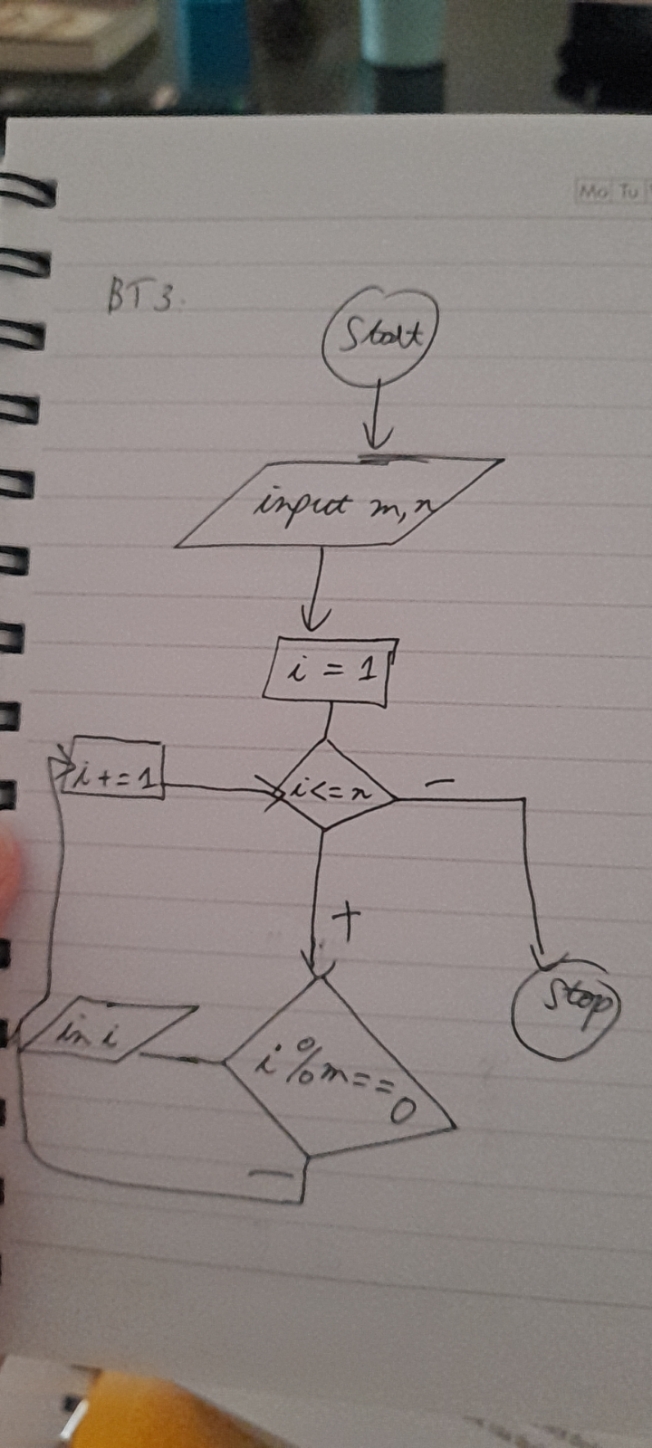 Mo Tu
BT3.
Start
input m, n
i = 1
i += 1
i <= n
-
+
Stop
in i
i % m == 0
-